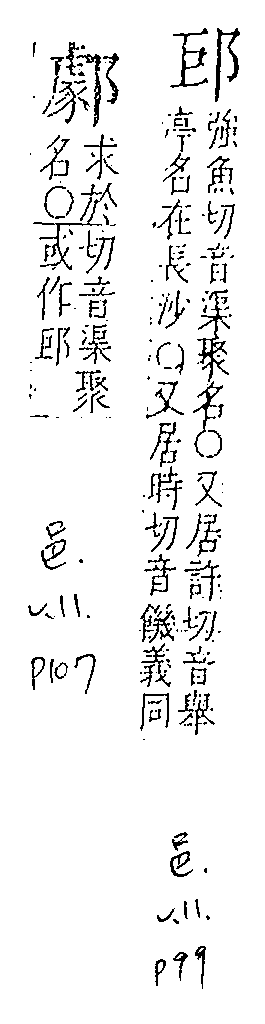 強魚切音渠聚名○又居許切音舉
亭名在長沙○又居時切音饑義同
邑.
v.11.
p99
求於切音渠聚
名○或作
邑.
v.11.
p107